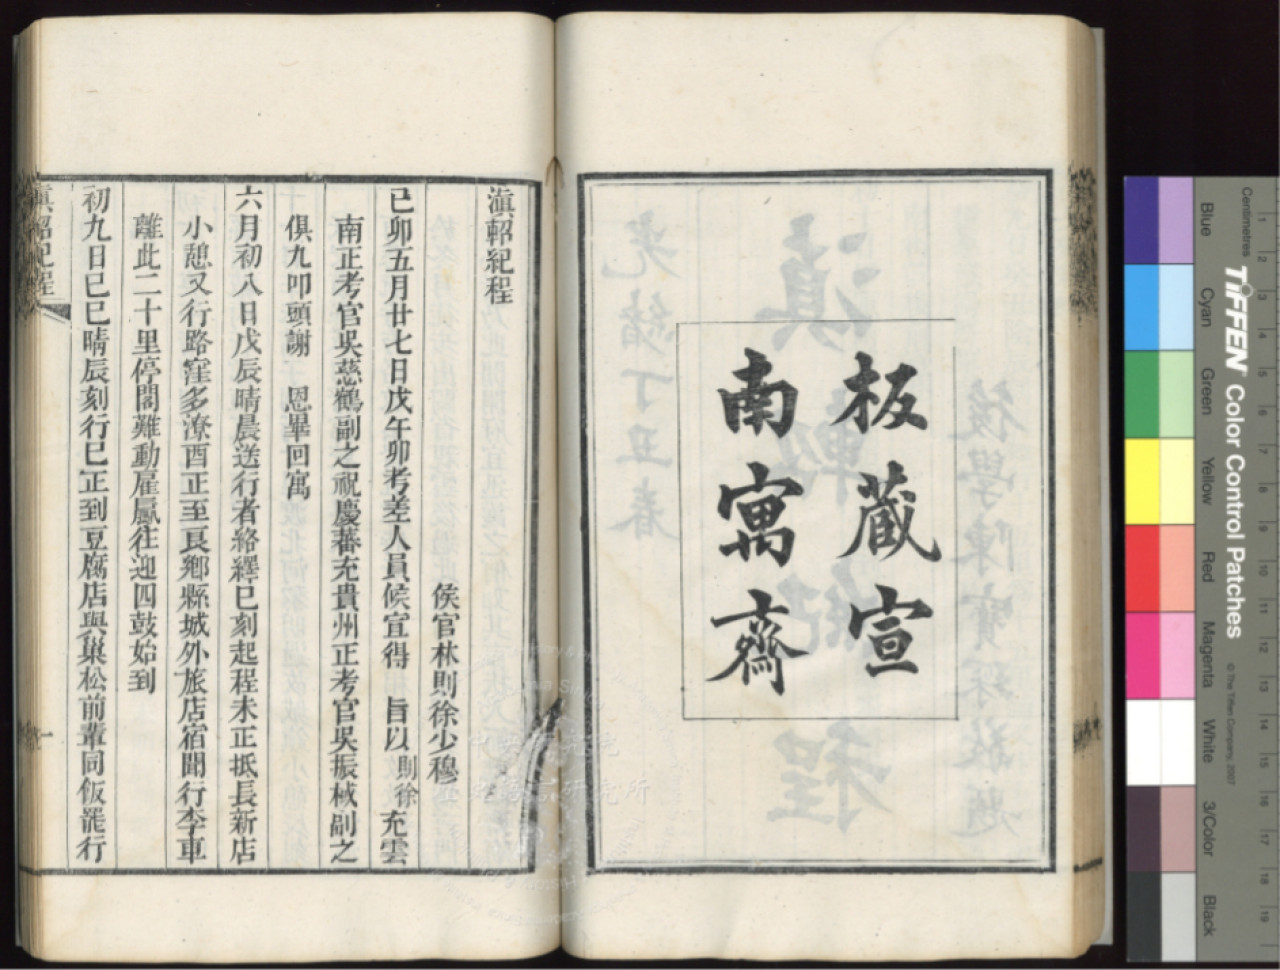 板藏宣
南寓齋
滇軺紀程
侯官林則徐少穆
己卯五月廿七日戊午卯考差人員候宣得 旨以則徐充雲
南正考官吳慈鶴副之祝慶蕃充貴州正考官吳振棫副之
俱九叩頭謝 恩畢回寓
六月初八日戊辰晴晨送行者絡繹巳刻起程未正抵長新店
小憩又行路窪多潦酉正至良鄉縣城外旅店宿聞行李車
離此二十里停閣難動雇驘往迎四鼓始到
初九日己巳晴辰刻行巳正到豆腐店與巢松前輩同飯罷行
滇軺紀程
一
Centimetres
TIFFEN Color Control Patches
© The Tiffen Company, 2007
Blue
Cyan
Green
Yellow
Red
Magenta
White
3/Color
Black
1
2
3
4
5
6
7
8
9
10
11
12
13
14
15
16
17
18
19